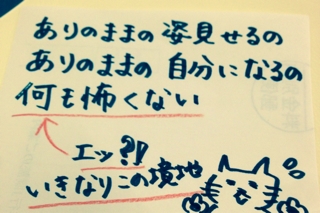 ありのままの姿見せるの
ありのままの自分になるの
何も怖くない
エッ?!
いきなりこの境地